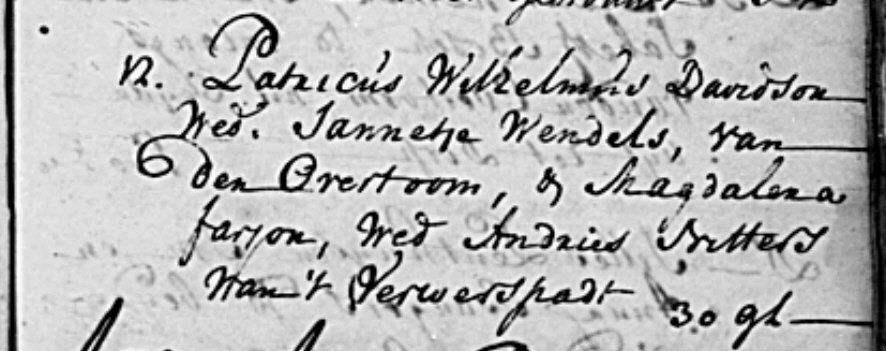 n. Patricus Wilhelmus Davidson
Wed.r Jannetje Wendels, van
den Overtoom, & Magdalena
farjon, Wed Andries Ritters
van 't Verwerspadt
30 gl